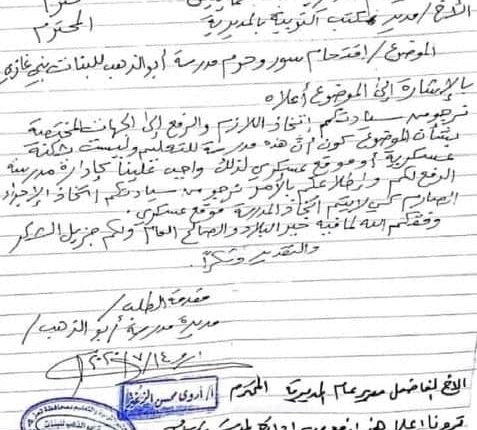 الأخ / مدير مكتب التربية بالمديرية المحترم
الموضوع / اقتحام سور وحرم مدرسة أبو الذهب للبنات بني غازي
بالإشارة إلى الموضوع أعلاه
نرجو من سيادتكم اتخاذ اللازم والرفع إلى الجهات المختصة
بشأن الموضوع كون أن هذه مدرسة للتعليم وليست ثكنة
عسكرية أو موقع عسكري لذلك واجب علينا كإدارة مدرسة
الرفع لكم وإطلاعكم بالأمر نرجو من سيادتكم اتخاذ الإجراء
الصارم كي لا يتم اتخاذ المدرسة موقع عسكري.
وفقكم الله لما فيه خير البلاد والصالح العام ولكم جزيل الشكر
والتقدير وشكراً.
مقدمة الطلب /
مديرة مدرسة / أبو الذهب /
٢٠٢٠/٧/١٤
أ/ أروى محسن
الأخ الفاضل مدير عام المديرية المحترم